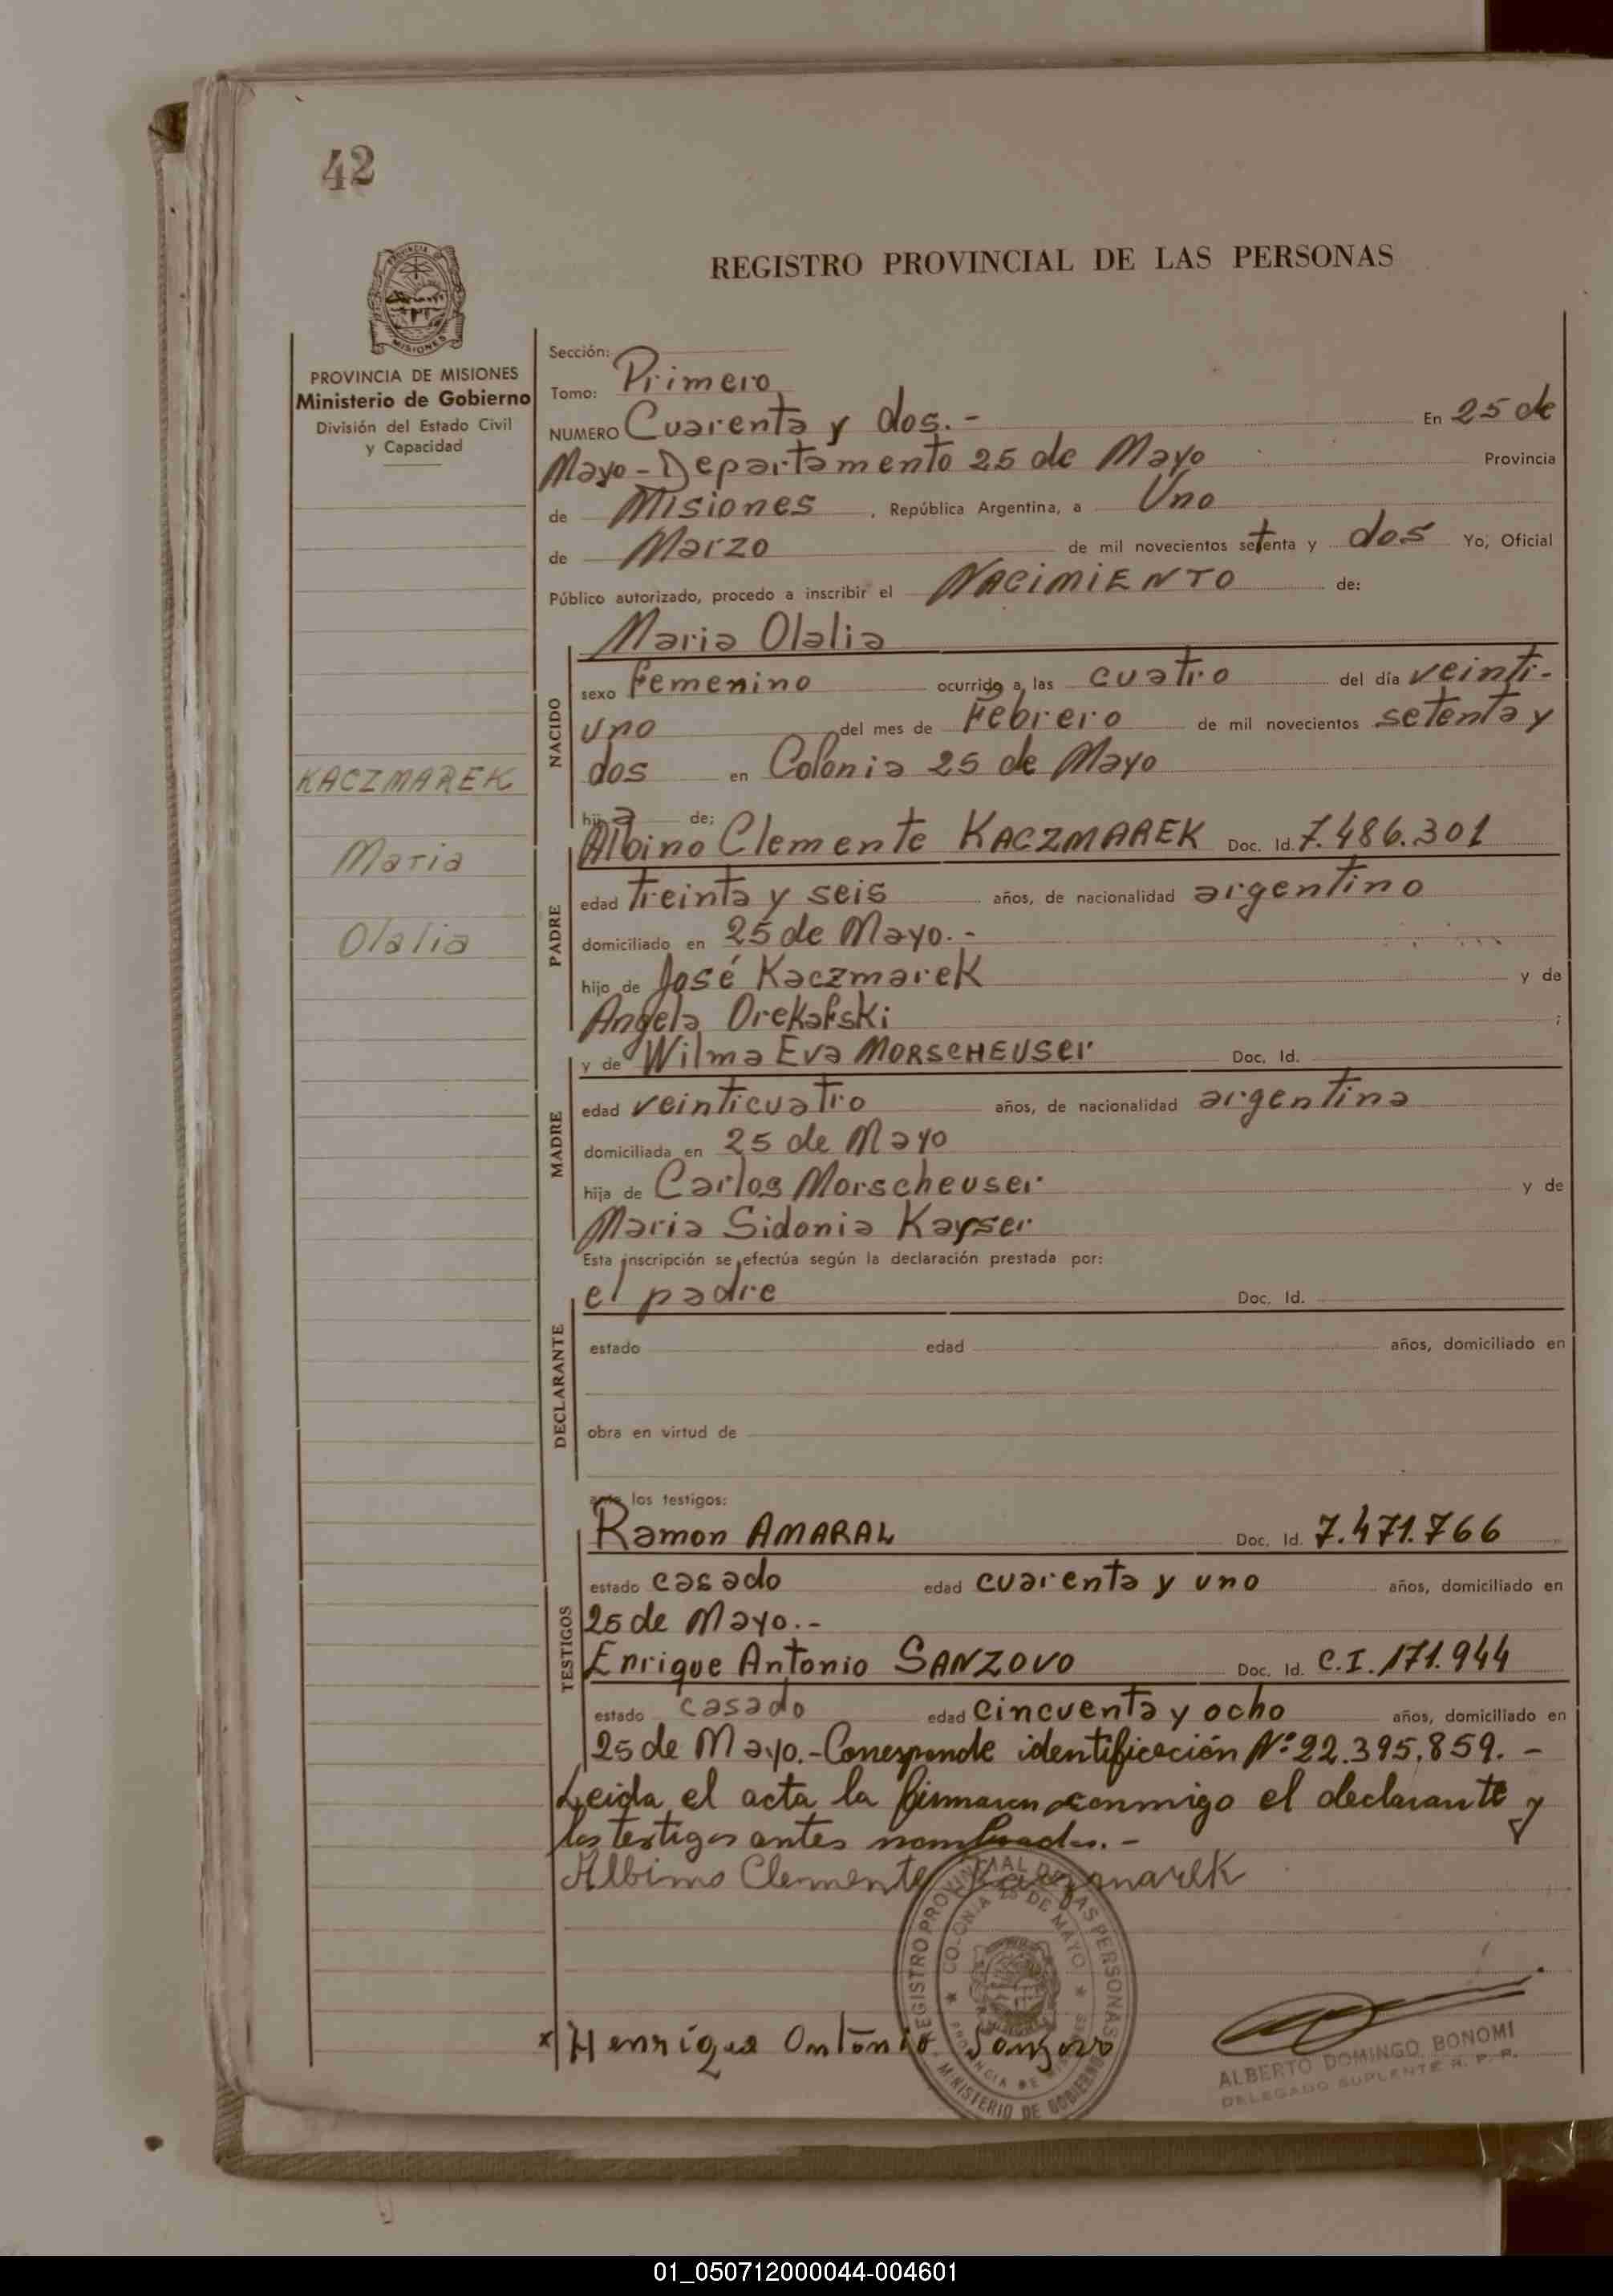 42
PROVINCIA DE
MISIONES
PROVINCIA DE MISIONES
Ministerio de Gobierno
División del Estado Civil
y Capacidad
KACZMAREK
Maria
Olalia
REGISTRO PROVINCIAL DE LAS PERSONAS
Sección:
Tomo: Primero
NUMERO Cuarenta y dos.- En 25 de
Mayo - Departamento 25 de Mayo Provincia
de Misiones , República Argentina, a Uno
de Marzo de mil novecientos setenta y dos Yo, Oficial
Público autorizado, procedo a inscribir el NACIMIENTO de:
Maria Olalia
NACIDO
sexo Femenino ocurrido a las cuatro del día veinti-
uno del mes de Febrero de mil novecientos setenta y
dos en Colonia 25 de Mayo
hija de:
Albino Clemente KACZMAREK Doc. Id. 7.486.301
PADRE
edad treinta y seis años, de nacionalidad argentino
domiciliado en 25 de Mayo.-
hijo de José Kaczmarek y de
Angela Orekafski ;
y de Wilma Eva MORSCHEUSEr Doc. Id.
MADRE
edad veinticuatro años, de nacionalidad argentina
domiciliada en 25 de Mayo
hija de Carlos Morscheuser y de
Maria Sidonia Kayser
Esta inscripción se efectúa según la declaración prestada por:
el padre Doc. Id.
DECLARANTE
estado edad años, domiciliado en
obra en virtud de
ante los testigos:
Ramon AMARAL Doc. Id. 7.471.766
TESTIGOS
estado casado edad cuarenta y uno años, domiciliado en
25 de Mayo.-
Enrique Antonio SANZOVO Doc. Id. C.I. 171.944
estado casado edad cincuenta y ocho años, domiciliado en
25 de Mayo.-Corresponde identificación Nº 22.395.859.-
Leida el acta la firmaron conmigo el declarante y
los testigos antes nombrados.-
Albino Clemente Kaczmarek
REGISTRO PROVINCIAL DE LAS PERSONAS
COLONIA 25 DE MAYO
PROVINCIA DE MISIONES
MINISTERIO DE GOBIERNO
x Henrique Antônio Sanzovo
ALBERTO DOMINGO BONOMI
DELEGADO SUPLENTE R. P. P.
01_050712000044-004601